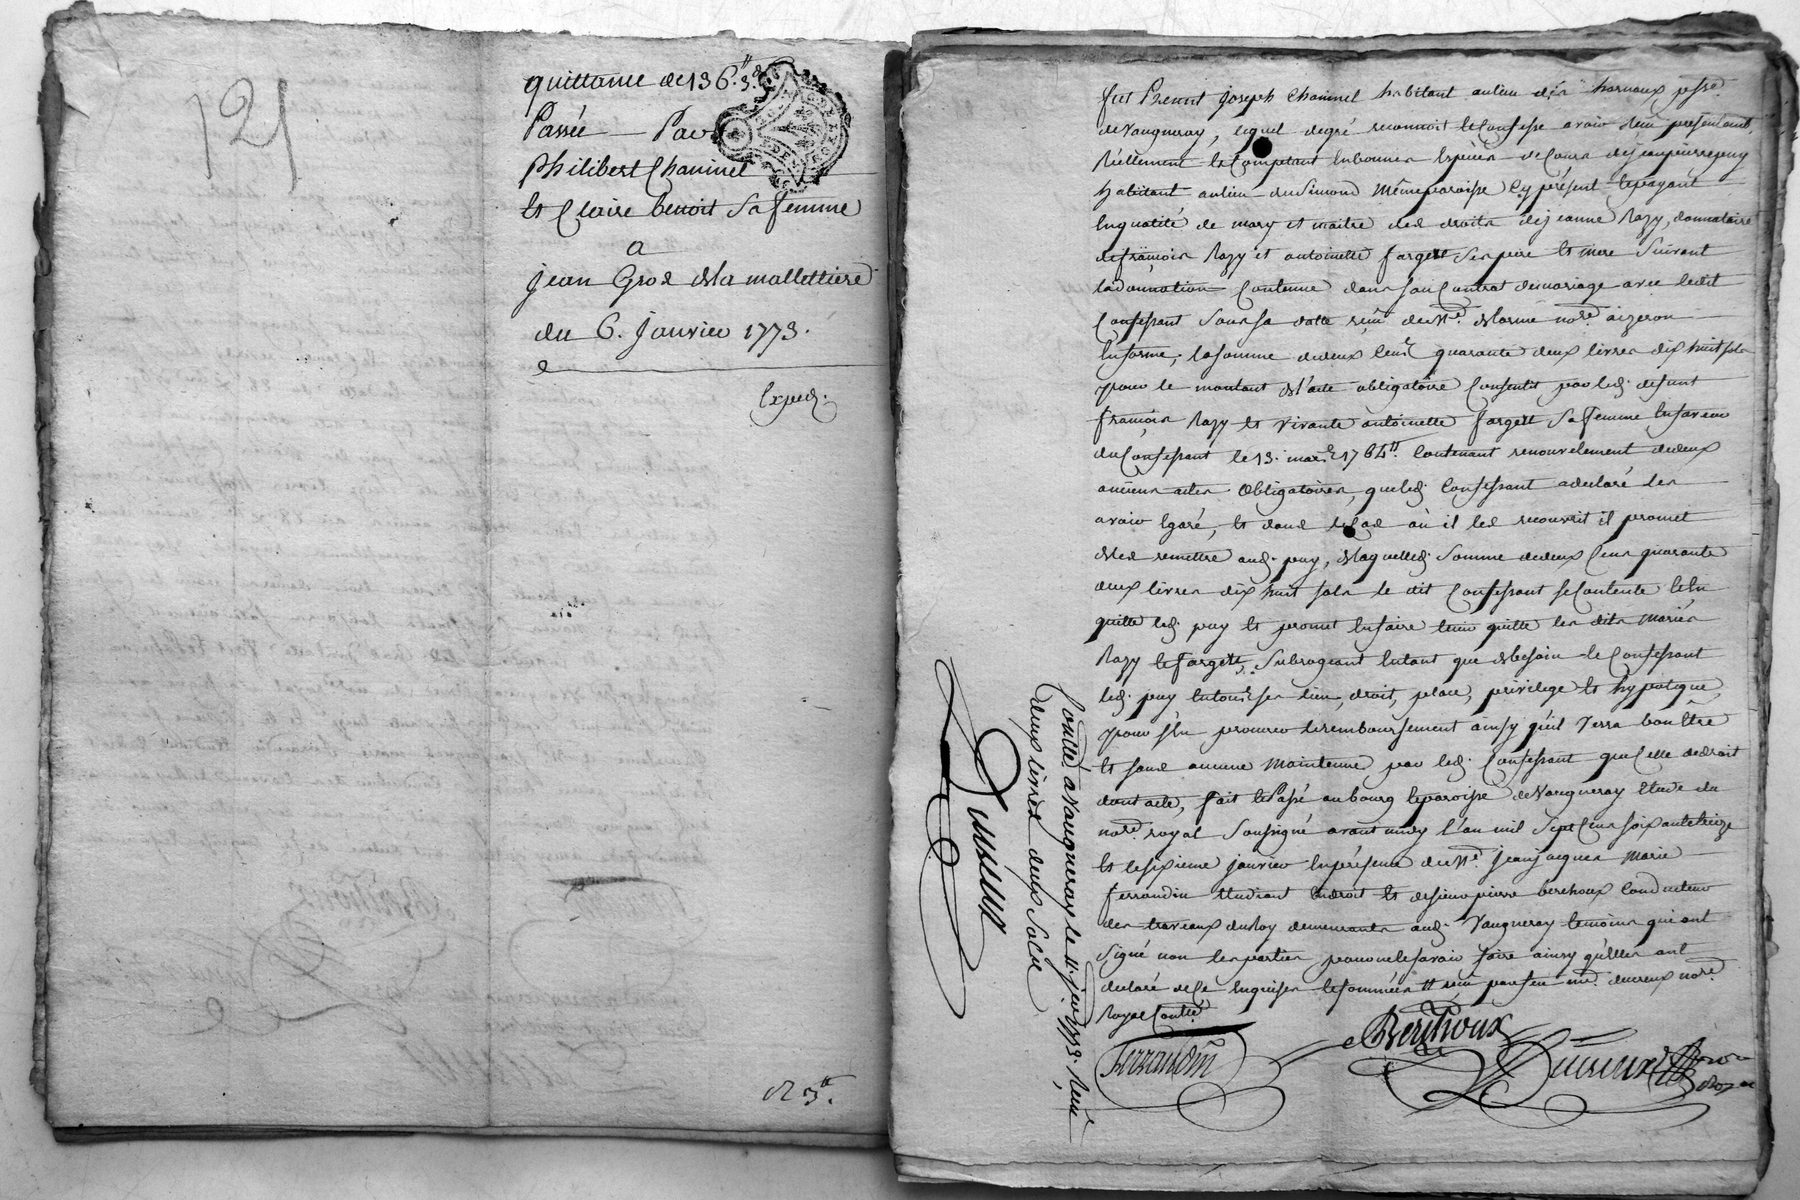 121
quittance de 136.ᵗᵗ 3.ˢ
Passée — Par
philibert Chaninel
et Claire benoit Sa femme
a
jean Gros dela mallettiere
du 6. Janvier 1773.
Exped.
R 3.ᵗᵗ
fut Present joseph Chaninel habitant au lieu des harnaux psse.
de Vaugneray, lequel de gré reconnoit et Confesse avoir Reçu presentement
Réellement et Comptant En bonnes Espèces de Cours de jean pierre puy
habitant au lieu du Simond même paroisse Cy présent et payant
En qualité de mary et maitre des droits de jeanne Razy, donnataire
de françois Razy et antoinette fargett Ses pere et mere Suivant
la donnation Contenue dans Son Contrat de mariage avec ledit
Confessant Sous Sa date reçu de Mᵉ. delorme noʳᵉ. aizeron
En forme, la Somme de deux Cent quarante deux livres dix huit Sols
pour le montant de l'acte obligatoire Consenti par led. defunt
françois Razy et vivante antoinette fargett Sa femme En faveur
du Confessant le 13. mars 1764. Contenant renouvelement de deux
anciens actes obligatoires, que led. Confessant a declaré les
avoir Egaré, et dans le Cas où il les recouvrit il promet
de les remettre aud. puy, de laquelle d. Somme de deux Cens quarante
deux livres dix huit Sols le dit Confessant Se Contente et En
quitte led. puy et promet En faire tenir quitte les dits mariés
Razy et fargett, Subrogeant En tant que de besoin le Confessant
led. puy En tous Ses lieu, droit, place, privilege et hypotéque,
pour S'En procurer le remboursement ainsy qu'il Verra bon Être
et Sans aucune Maintenue par led. Confessant que Celle de droit
dont acte, fait et Passé au bourg et paroisse de Vaugneray Etude du
noʳᵉ. royal Soussigné avant midy l'an mil Sept Cens Soixante treize
et le Sixieme janvier En présence de Mᵉ. jean jacques Marie
ferrandin Etudiant En droit et de Sieur pierre berthoux Conducteur
des travaux du Roy demeurants aud. Vaugneray temoins qui ont
Signé non les parties pour ne le Savoir faire ainsy qu'elles ont
declaré de Ce Enquises et Sommées
Royal
Ferrandin
Berthoux
Ducreux
Controllé a Vaugneray le 11. janv. 1773. Reçu
deux livres deux Sols